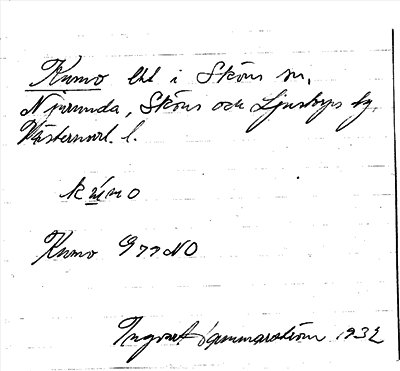 Kumo lht i Sköns sn,
Njurunda, Sköns och Ljustorps tg,
Västernorrl. l.
kúmo
Kumo G 77 NO
Ingvar Hammarström 1932